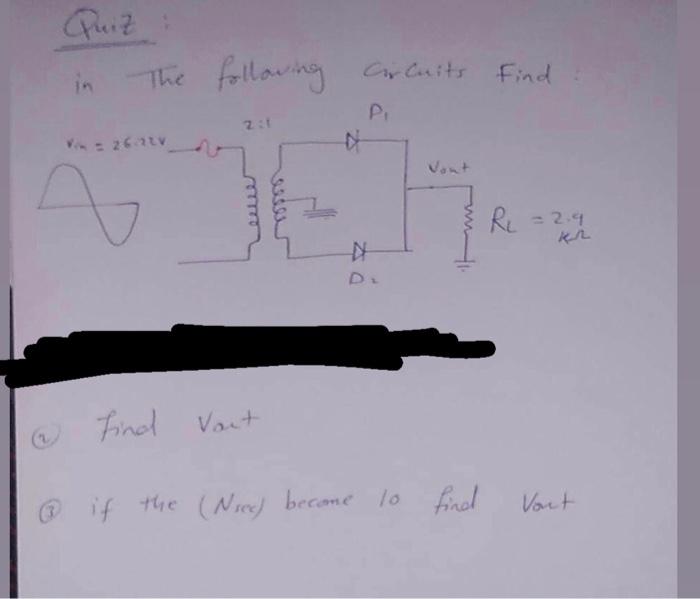 Quiz :
in The following Circuits Find :
2:1
D1
Vin = 26.22V
Vout
RL = 2.9
kΩ
D2
② find Vout
③ if the (Nsec) become 10 find Vout